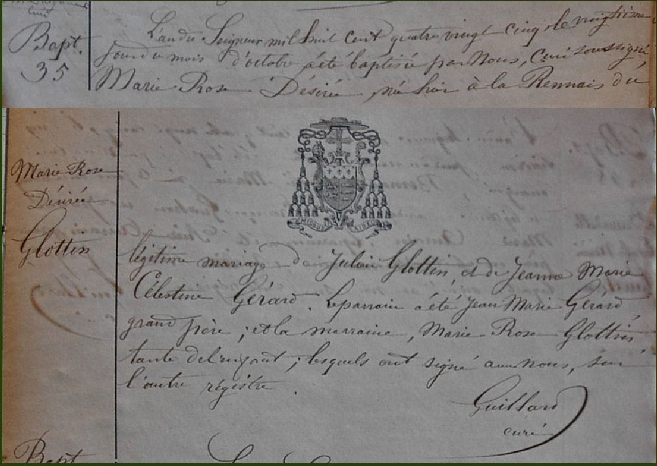 Bapt.
35
L'an du Seigneur mil huit cent quatre vingt cinq, le vingtième
jour du mois d'octobre a été baptisée par Nous, curé soussigné
Marie Rose Désirée, née hier à la Rennais du
Marie Rose
Désirée
Glottin
légitime mariage de Julien Glottin et de Jeanne Marie
Célestine Gérard. Le parrain a été Jean Marie Gérard
grand père ; et la marraine, Marie Rose Glottin
tante de l'enfant ; lesquels ont signé avec nous, sur
l'autre régistre.
Guillard
curé
Bapt